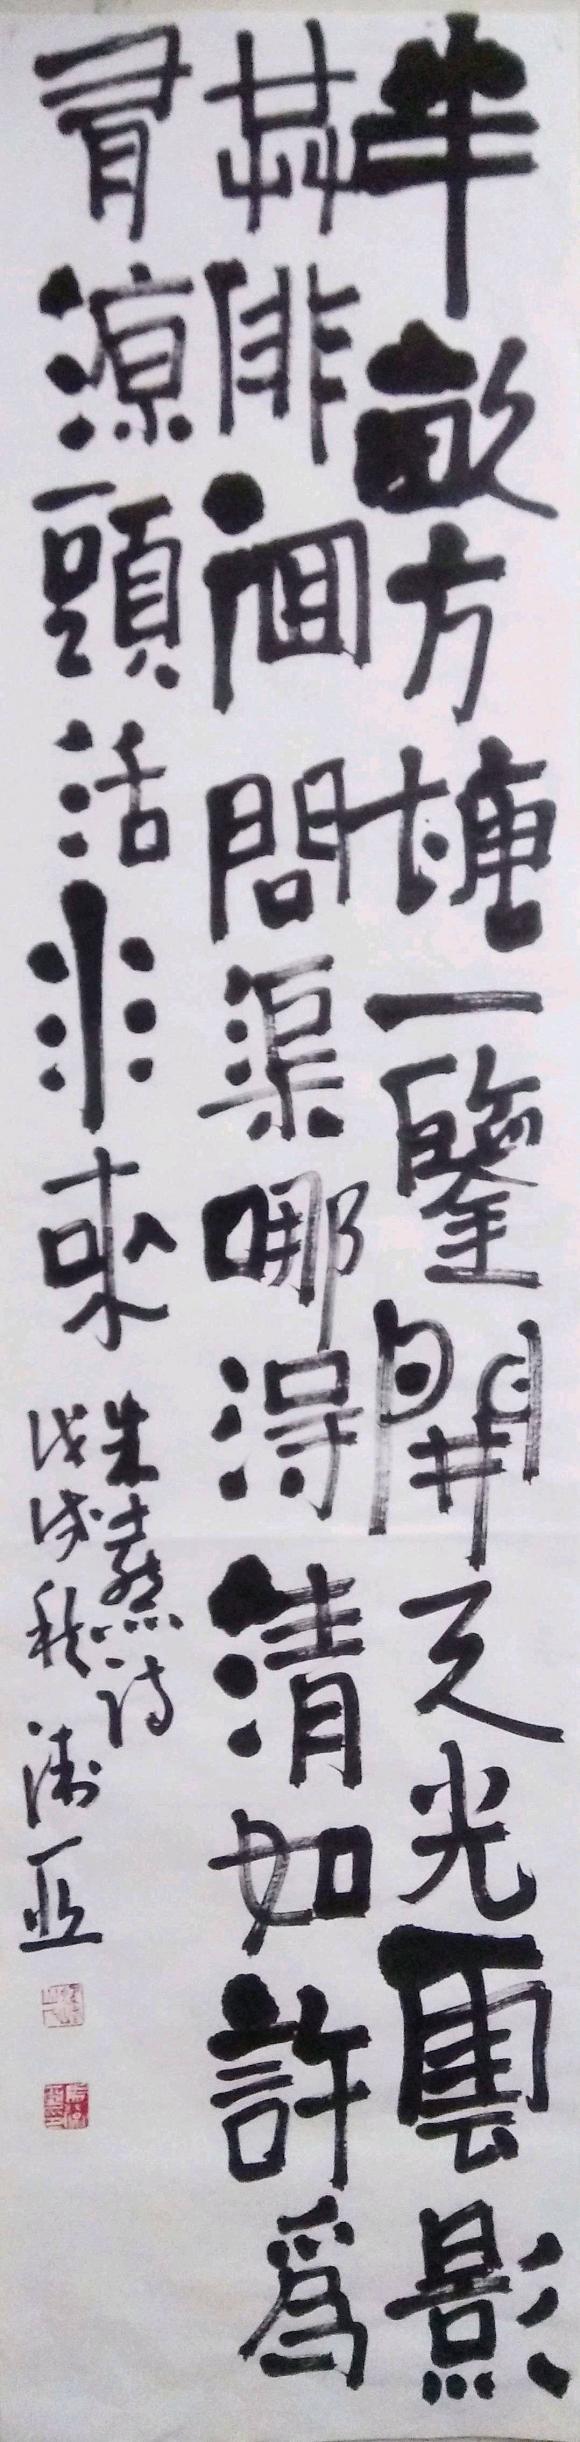 半畝方塘一鑒開天光雲影
共徘徊問渠哪得清如許爲
有源頭活水來
朱熹诗
戊戌秋